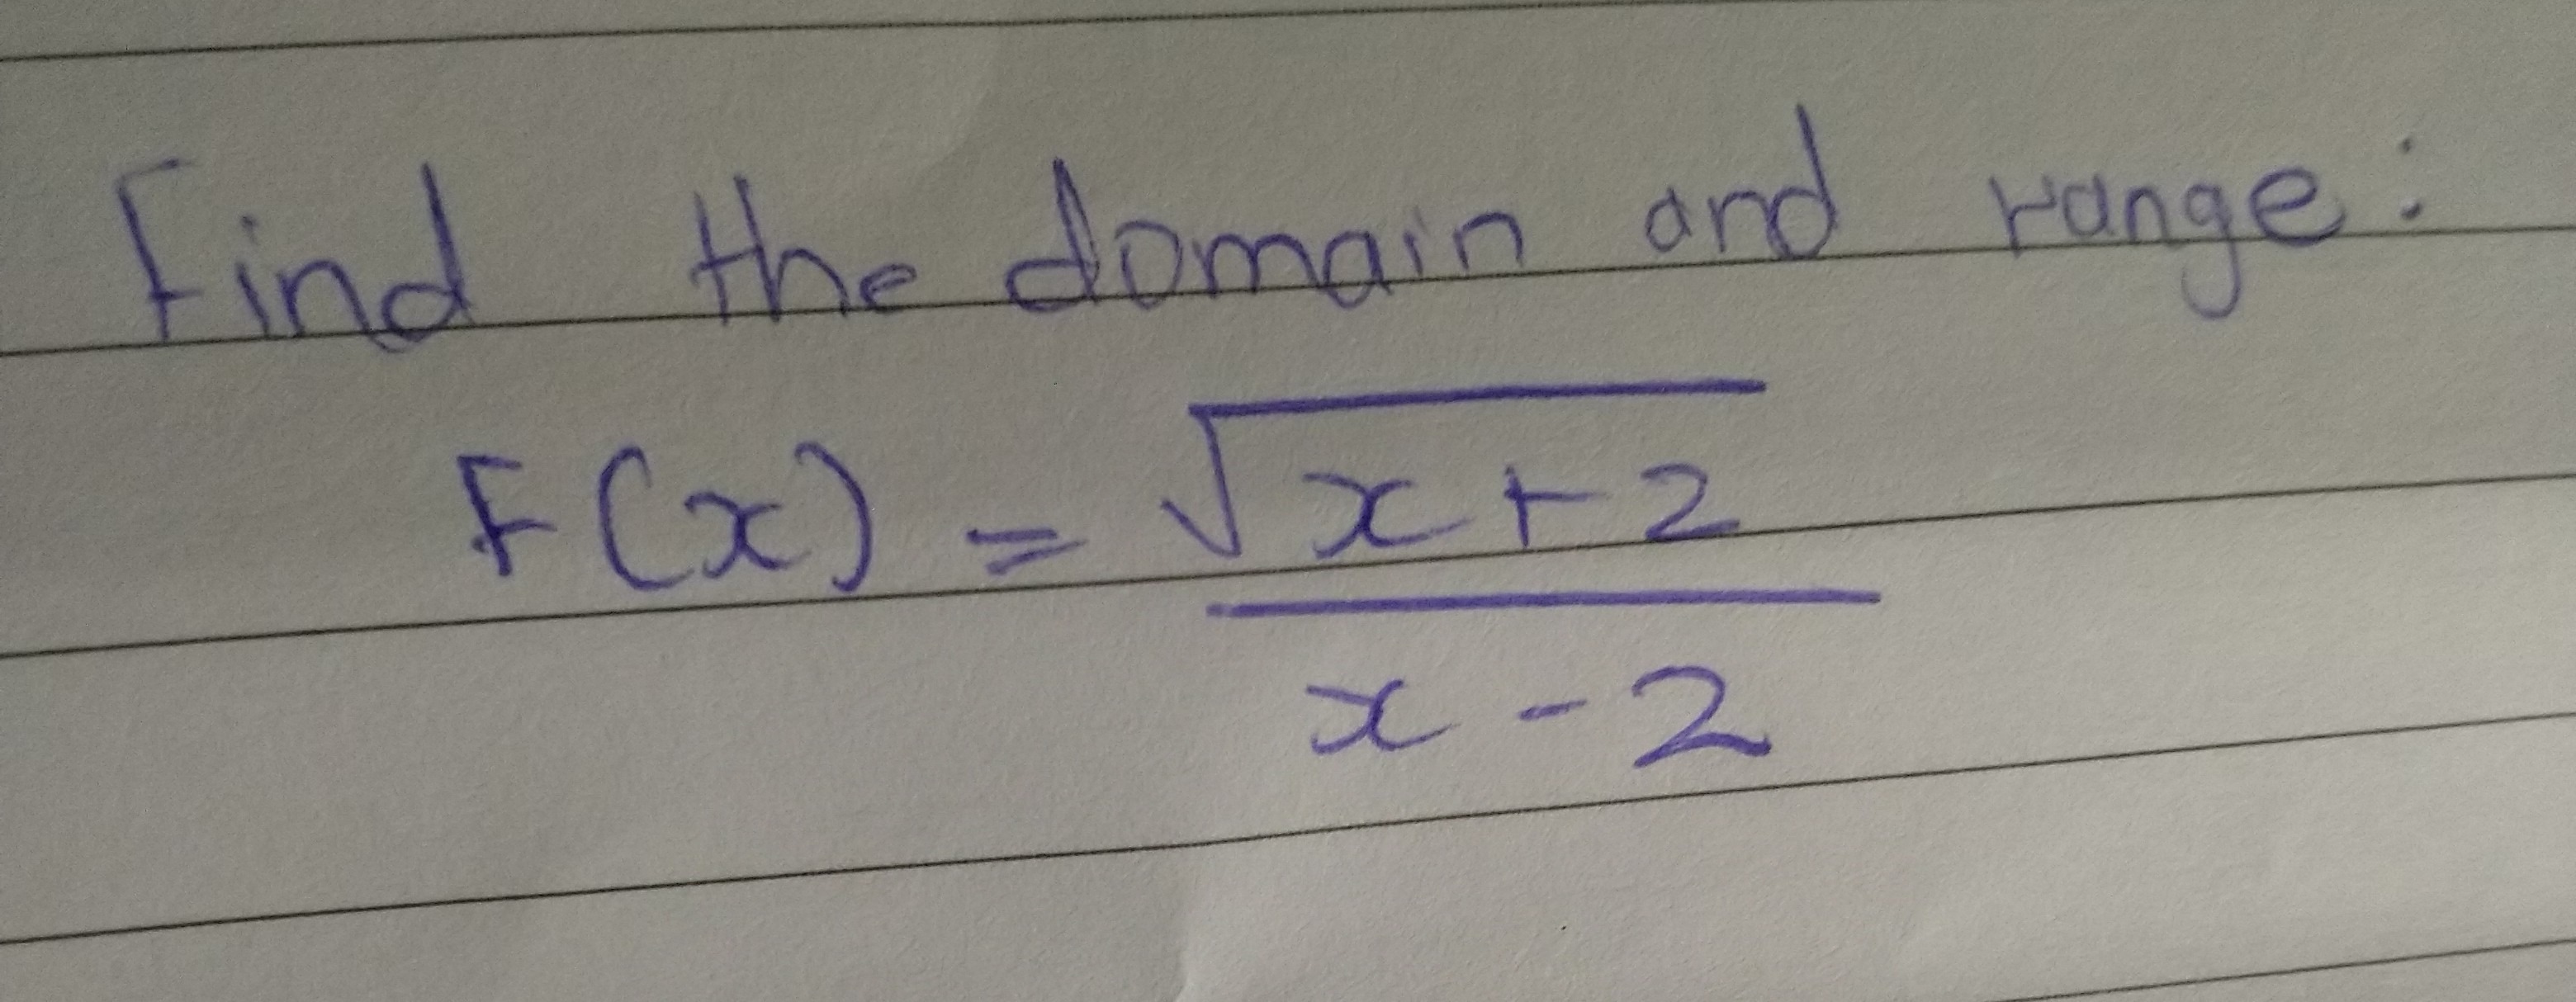 Find the domain and range:
F(x) = √(x+2)
/
x-2